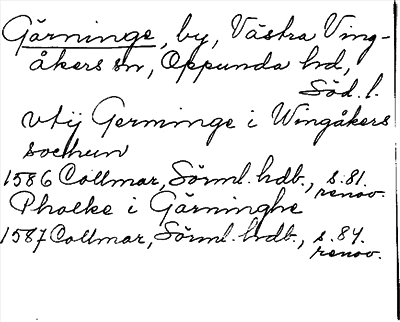 Gärninge, by, Västra Ving-
åkers sn, Oppunda hd,
Söd. l.
vtij Germinge i Wingåkers
sochun
1586 Collmar, Sörml. hdb., s. 81.
renov.
Pholke i Gärninghe
1587 Collmar, Sörml. hdb., s. 84.
renov.